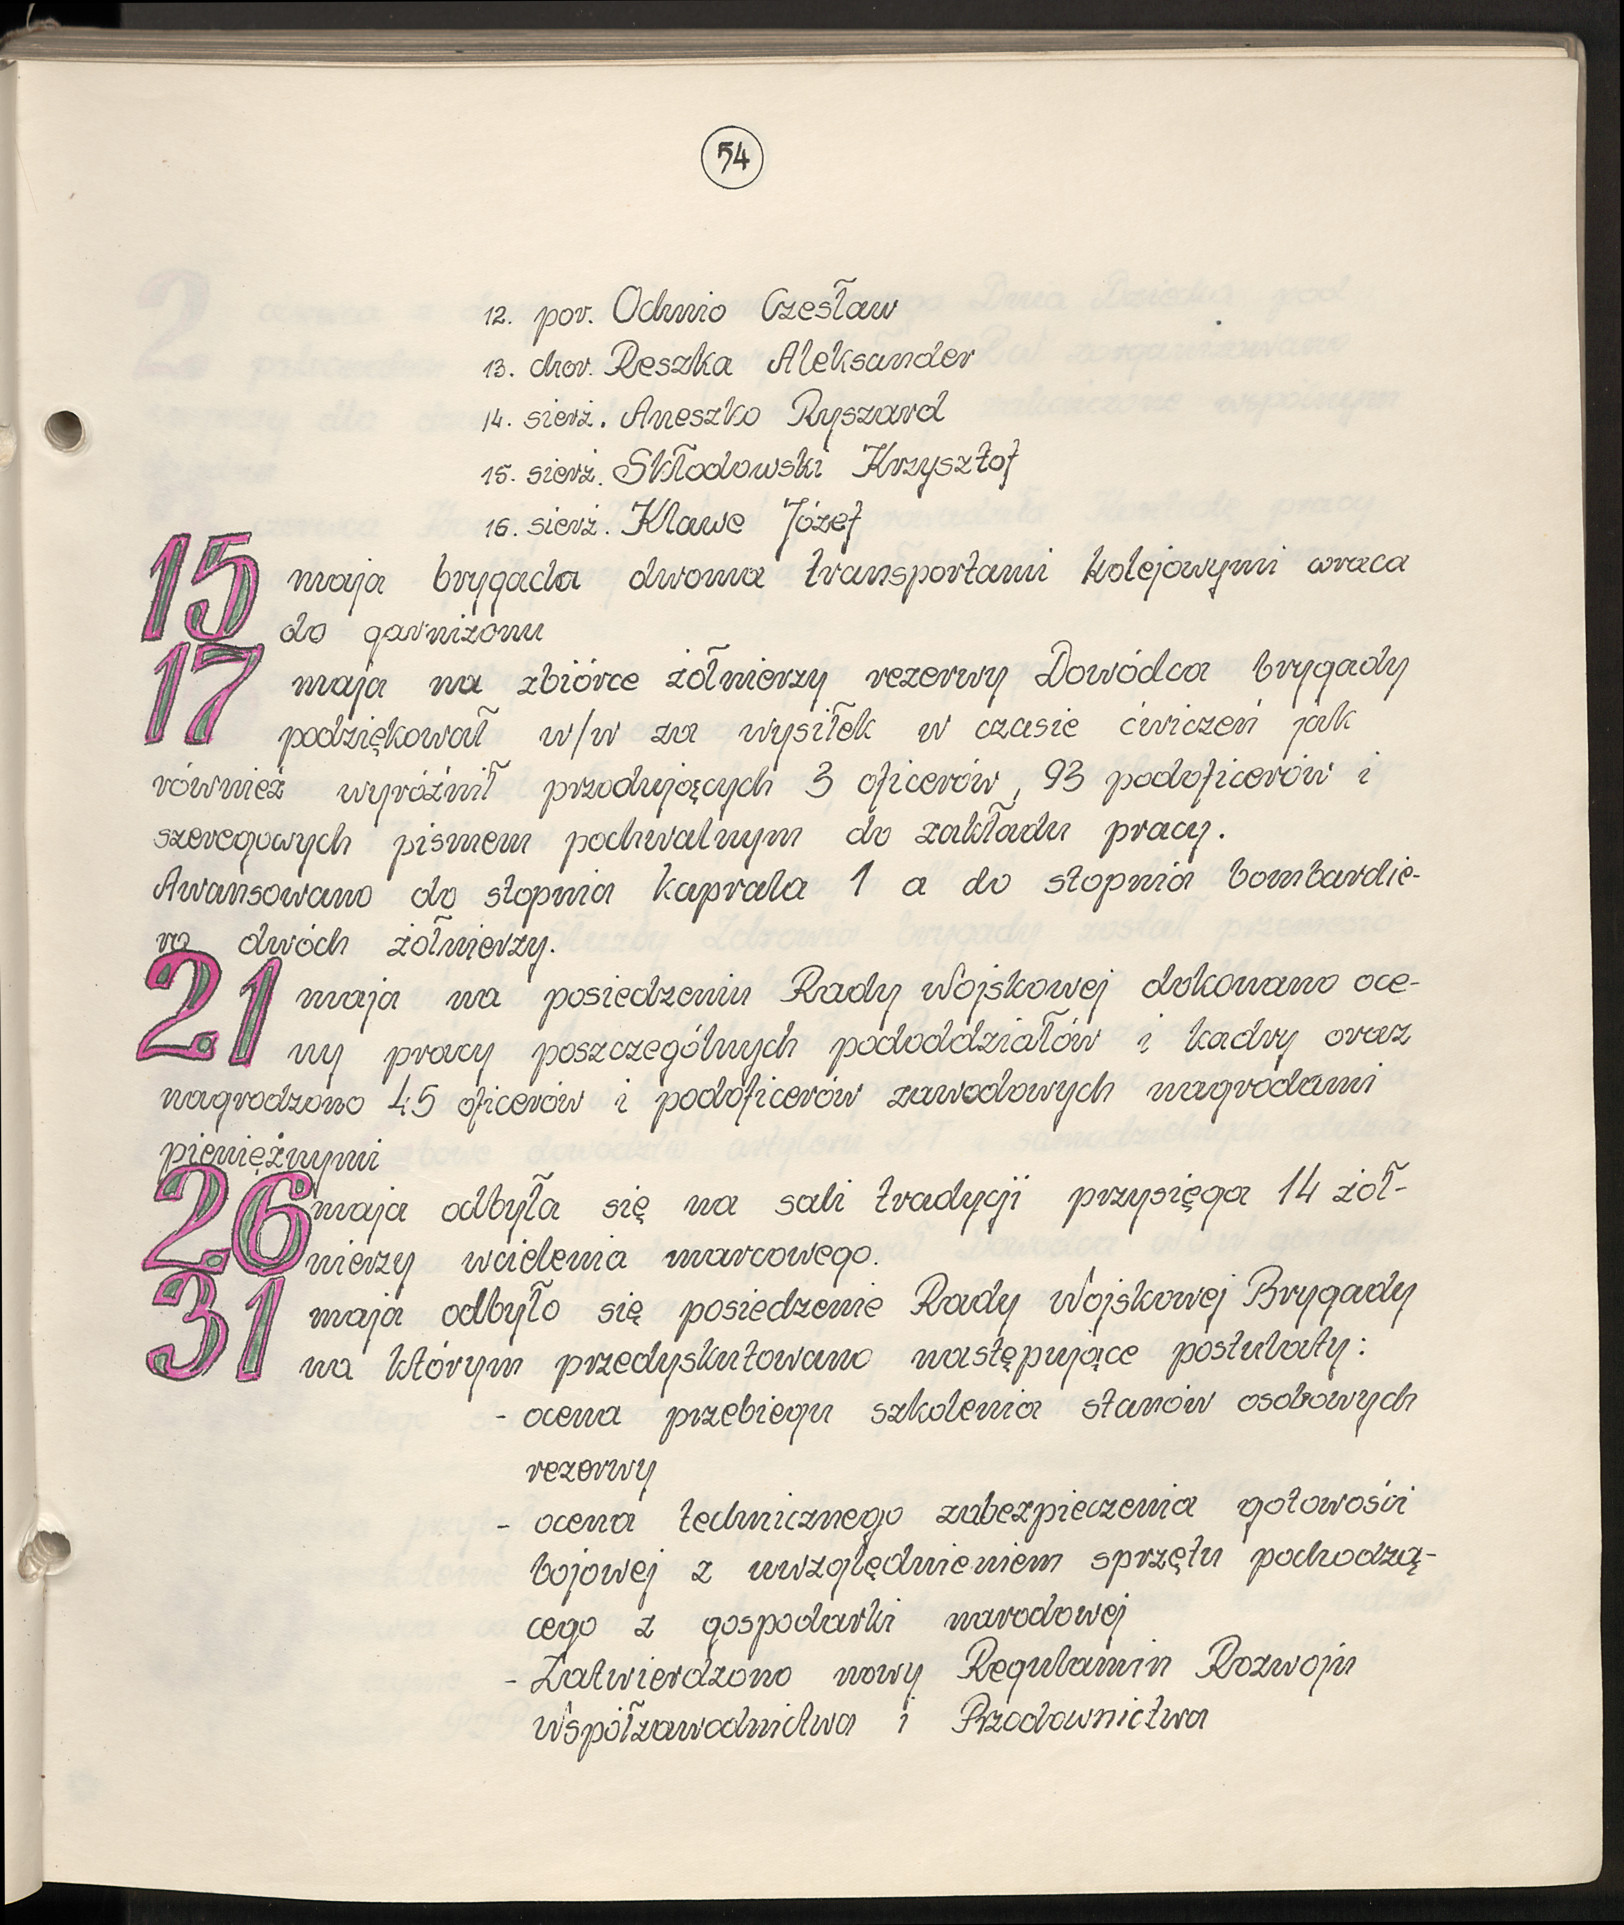 54
12. por. Ochnio Czesław
13. chor. Reszka Aleksander
14. sierż. Aneszko Ryszard
15. sierż. Skłodowski Krzysztof
16. sierż. Klawe Józef
15 maja brygada dwoma transportami kolejowymi wraca
do garnizonu
17 maja na zbiórce żółnierzy rezerwy Dowódca brygady
podziękował w/w za wysiłek w czasie ćwiczeń jak
również wyróżnił przodujących 3 oficerów, 93 podoficerów i
szeregowych pismem pochwalnym do zakładu pracy.
Awansowano do stopnia kaprala 1 a do stopnia bombardie-
ra dwóch żółnierzy.
21 maja na posiedzeniu Rady Wojskowej dokonano oce-
ny pracy poszczególnych pododdziałów i kadry oraz
nagrodzono 45 oficerów i podoficerów zawodowych nagrodami
pieniężnymi
26 maja odbyła się na sali tradycji przysięga 14 żół-
nierzy wcielenia marcowego.
31 maja odbyło się posiedzenie Rady Wojskowej Brygady
na którym przedyskutowano następujące postulaty:
- ocena przebiegu szkolenia stanów osobowych
rezerwy
- ocena technicznego zabezpieczenia gotowości
bojowej z uwzględnieniem sprzętu pochodzą-
cego z gospodarki narodowej
- Zatwierdzono nowy Regulamin Rozwoju
Współzawodnictwa i Przodownictwa